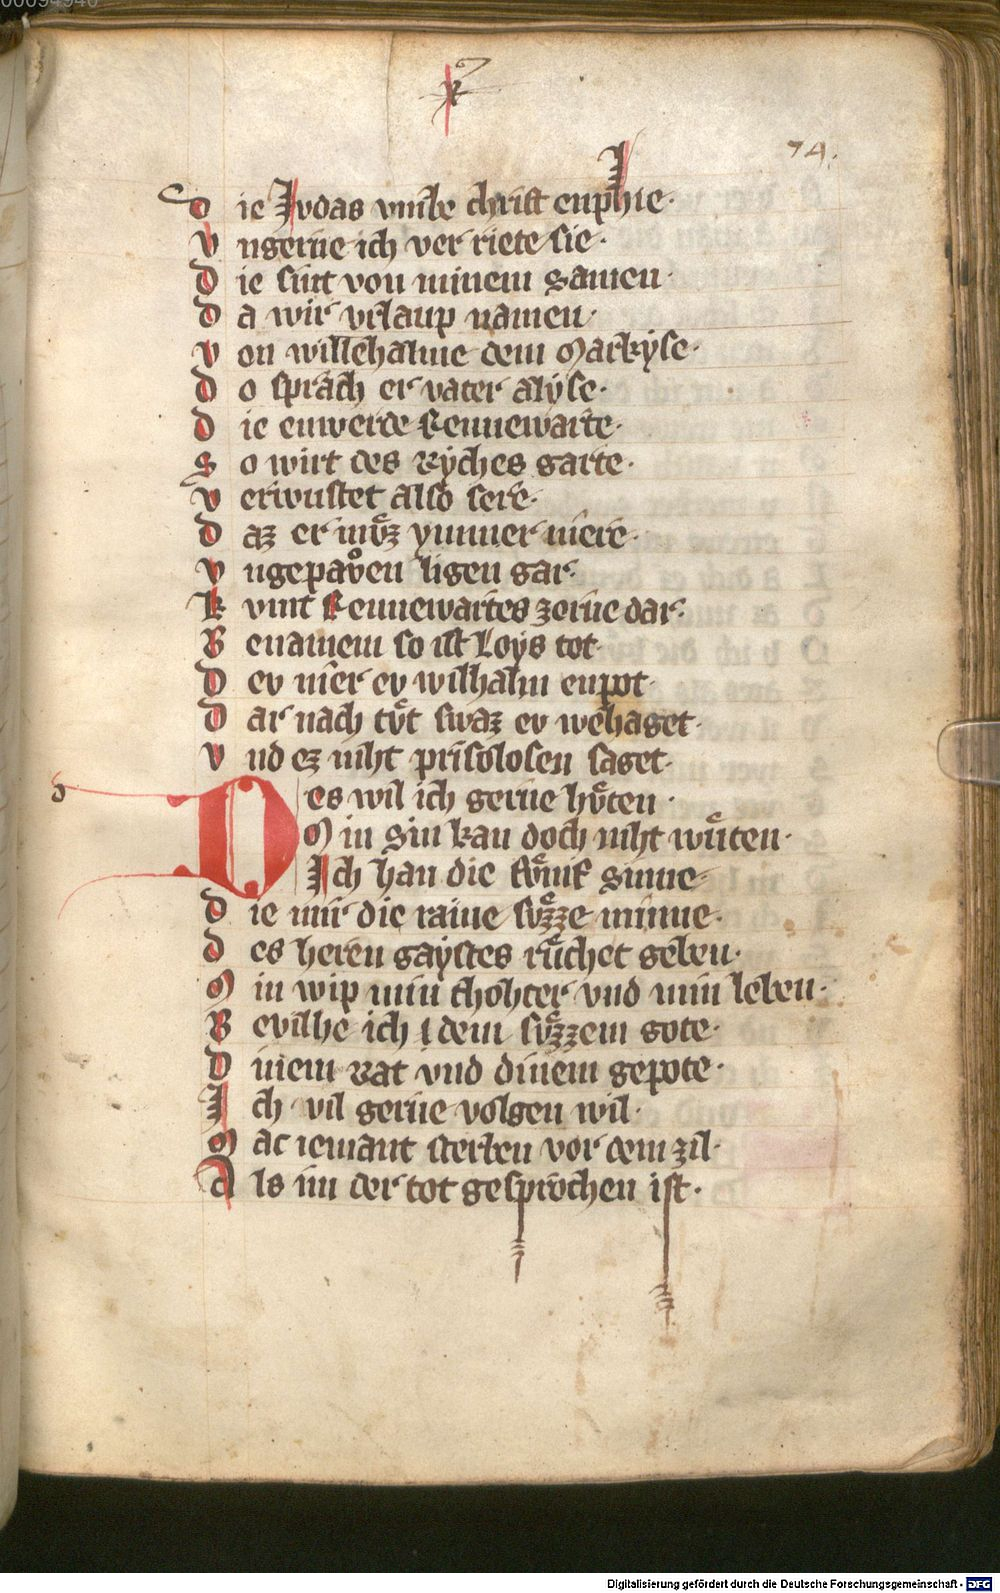 00094940
74.
d ie Judas vmbe christ enphie·
v ngerne ich ver riete sie·
D ie sint von minem samen·
D a wir vrlaup namen·
v on willehalme dem Markyse·
d o sprach er vater alyse·
d ie enwerde Rennewarte·
s o wirt des Ryches garte·
v erwustet also sere·
D az er mvͦz ymmer mere·
v ngepavͦen ligen gar·
k vmt Rennewartes zerne dar·
B enamem so ist Loys tot·
D ev mer ev wilhalm enpot·
D ar nach tvͤt swaz ev wehaget·
v nd ez niht prislosen saget·
d
Des wil ich gerne hvͤten·
M in Sin kan doch niht wuͤten·
Ich han die sinne·
d ie mir die raine svͤzze minne·
d es heren gaystes ruͤchet geben·
M in wip min thohter vnd min leben·
B evilhe ich dem svͤzzem gote·
D inem Rat vnd dinem gepote·
I ch vil gerne volgen wil·
M ac iemant sterben vor dem zil·
A ls im der tot gesprochen ist·
Digitalisierung gefördert durch die Deutsche Forschungsgemeinschaft - DFG